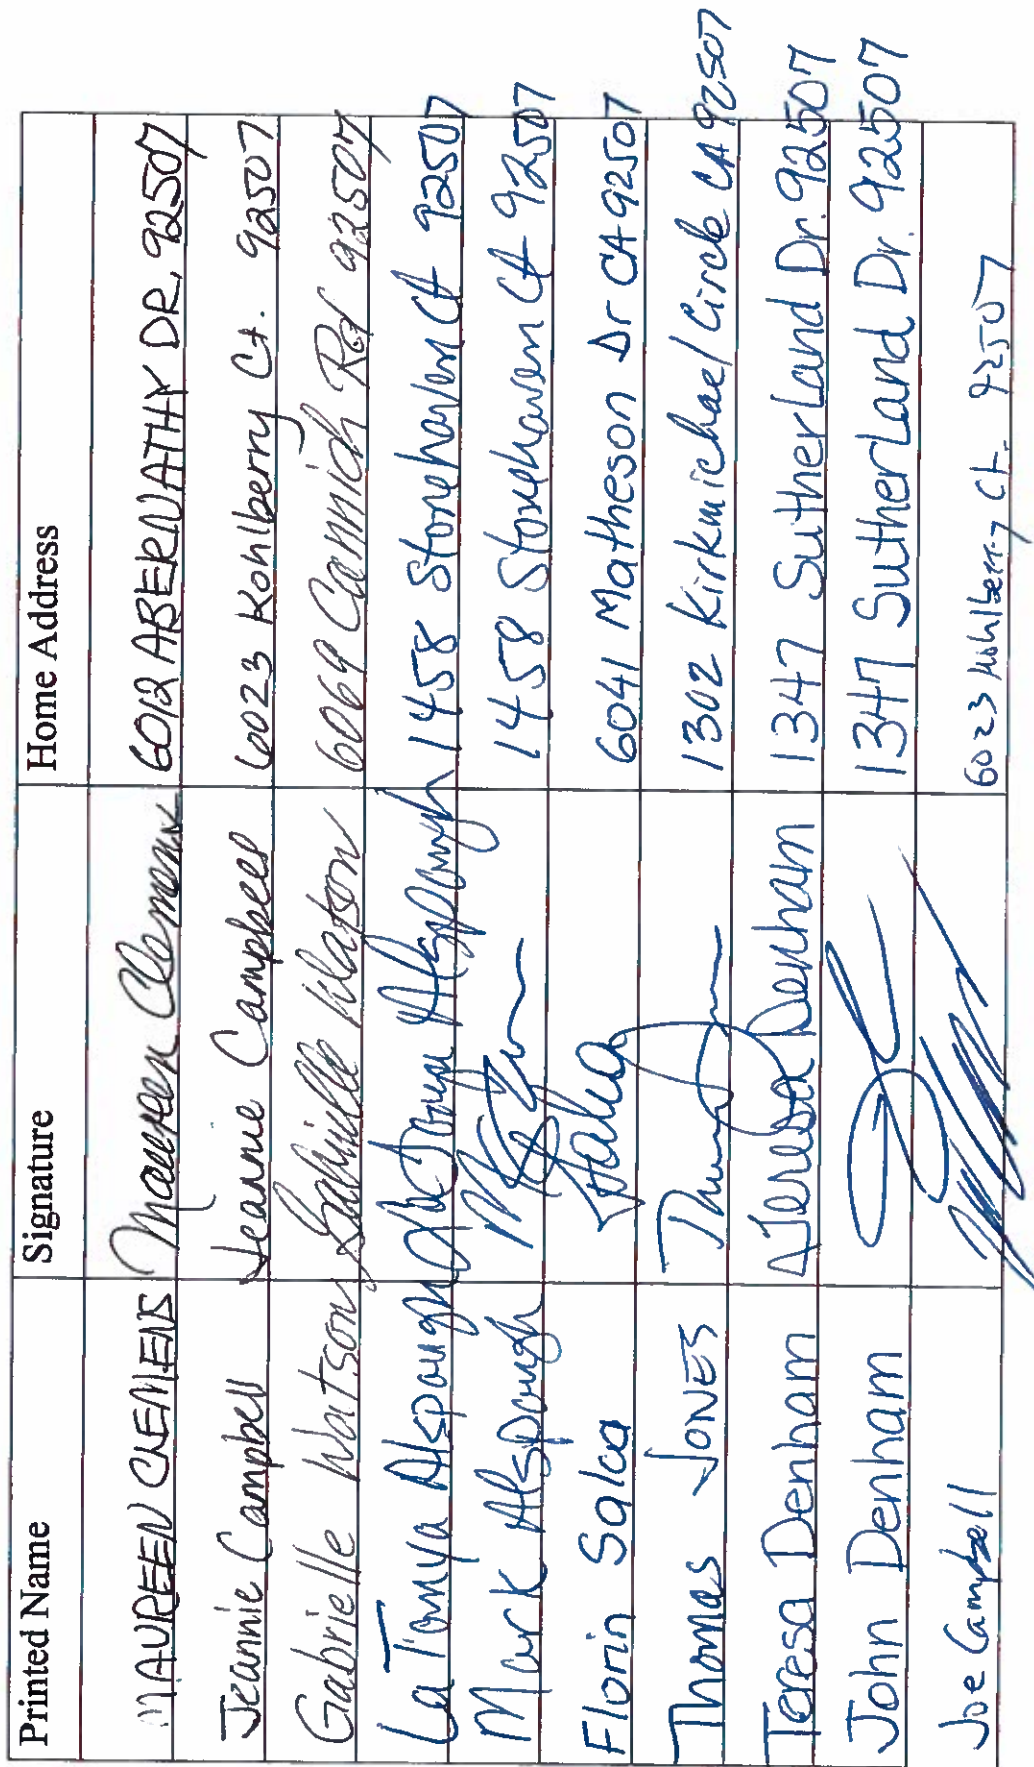 Printed Name Signature Home Address
MAUREEN CLEMENS Maureen Clemens 6012 ABERNATHY DR. 92507
Jeannie Campbell Jeannie Campbell 6023 Kohlberry Ct. 92507
Gabrielle Watson Gabrielle Watson 6069 Cannich Rd 92507
LaTonya Alspaugh LaTonya Alspaugh 1458 Stonehaven Ct 92507
Mark Alspaugh 1458 Stonehaven Ct 92507
Florin Salca Salca 6041 Matheson Dr CA 92507
Thomas JONES 1302 Kirkmichael Circle CA 92507
Teresa Denham Teresa Denham 1347 Sutherland Dr. 92507
John Denham 1347 Sutherland Dr. 92507
Joe Campbell 6023 Kohlberry Ct. 92507